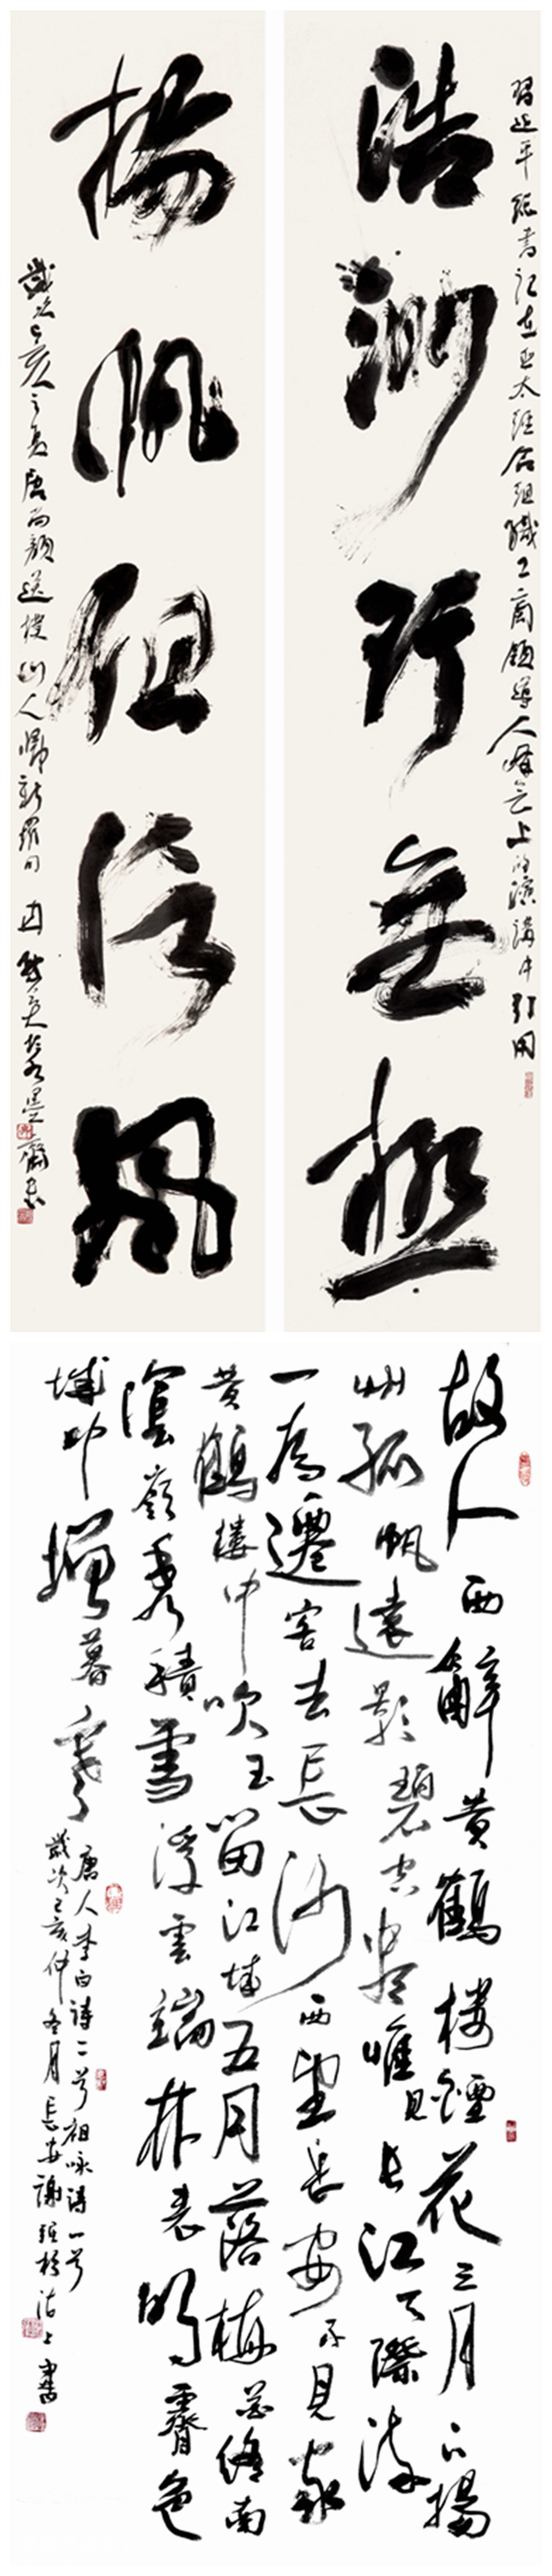 習近平總書記在亞太經合組織工商領導人峰會上的演講中引用
浩渺行無極
揚帆但信風
歲次己亥之夏唐尚顏送樸山人歸新羅句
故人西辭黃鶴樓煙花三月下揚
州孤帆遠影碧空盡唯見長江天際流
一為遷客去長沙西望長安不見家
黃鶴樓中吹玉笛江城五月落梅花終南
陰嶺秀積雪浮雲端林表明霽色
城中增暮寒
唐人李白詩二首祖咏詩一首
歲次己亥仲冬月長安謝